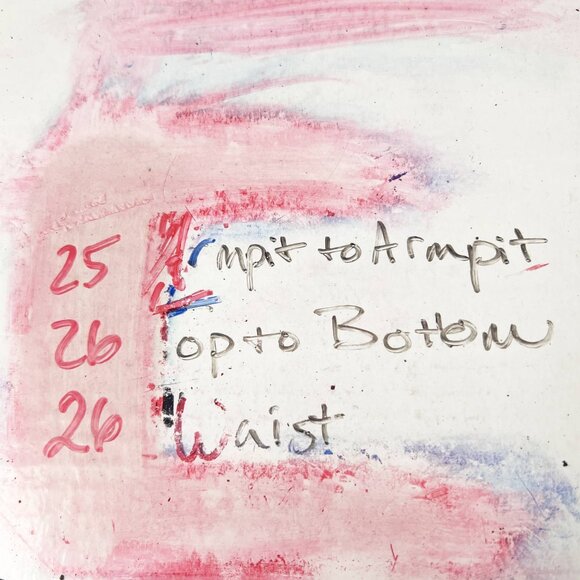 25 Armpit to Armpit
26 Top to Bottom
26 Waist